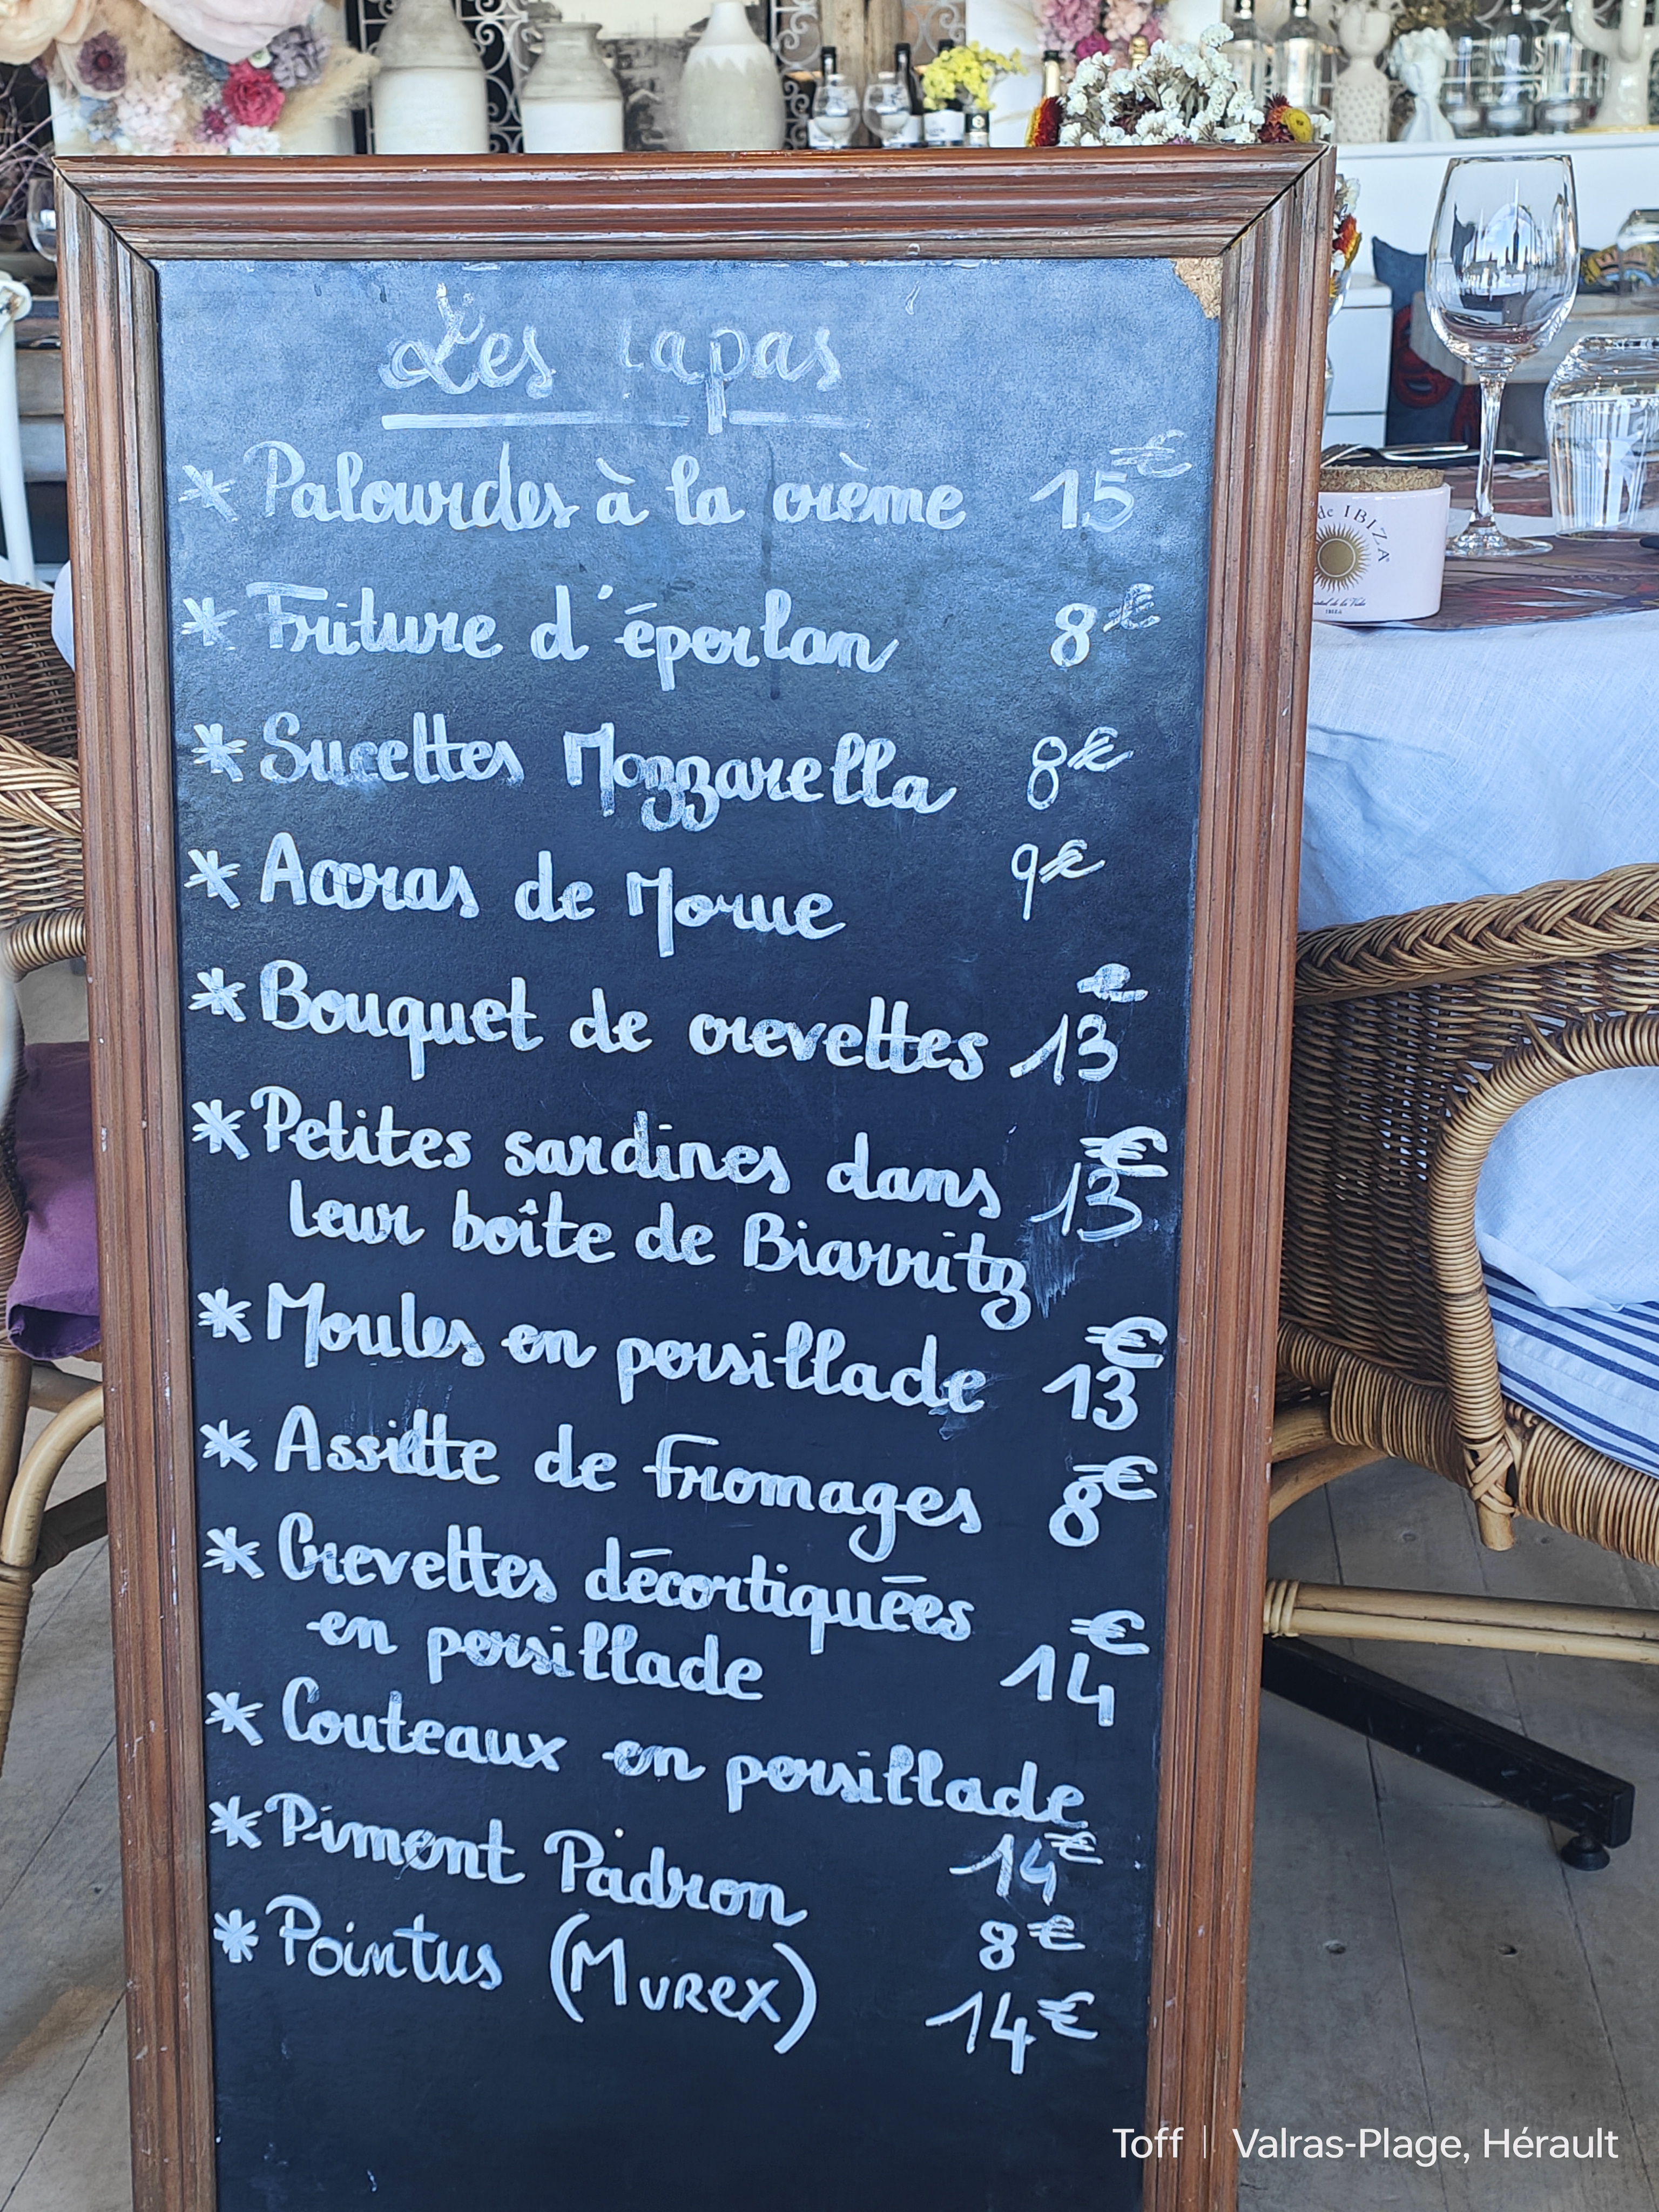 Les tapas
* Palourdes à la crème 15€
* Friture d'éperlan 8€
* Sucettes Mozzarella 8€
* Accras de Morue 9€
* Bouquet de crevettes 13€
* Petites sardines dans 13€
leur boîte de Biarritz
* Moules en persillade 13€
* Assiette de Fromages 8€
* Crevettes décortiquées
en persillade 14€
* Couteaux en persillade
14€
* Piment Padron
8€
* Pointus (Murex)
14€
de IBIZA
IBIZA
Toff | Valras-Plage, Hérault